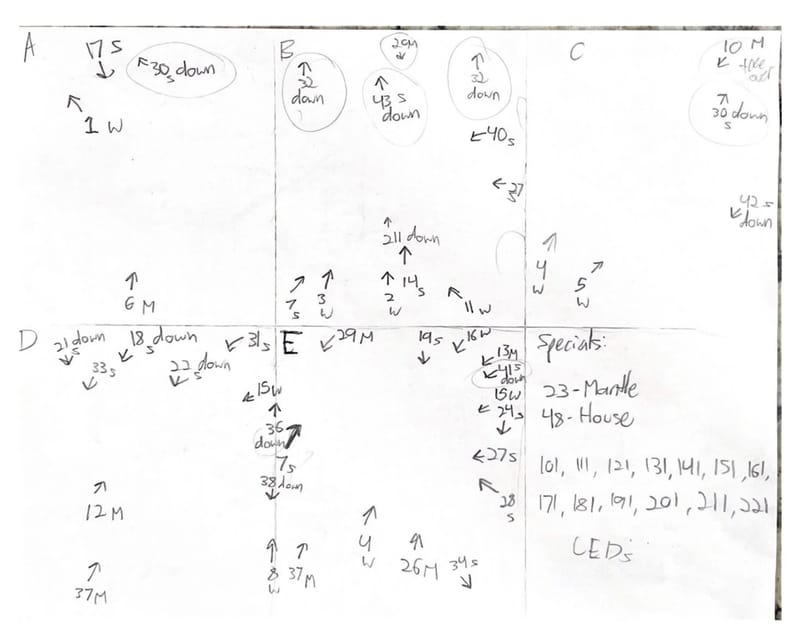 A
17 S
30 s down
1 W
6 M
B
32 down
29M
43 s down
32 down
40 s
27 s
211 down
7 s
3 W
2 W
14 s
11 W
C
10 M
30 down s
42 s down
4 W
5 W
D
21 down s
18 s down
31 s
33 s
22 down s
15 W
36 down
7 s
38 down
12 M
37 M
8 W
E
29 M
19 s
16 W
13 M
41 s down
15 W
24 s
27 s
28 s
37 M
4 W
26 M
34 s
Specials:
23-Mantle
48-House
101, 111, 121, 131, 141, 151, 161,
171, 181, 191, 201, 211, 221
LEDs